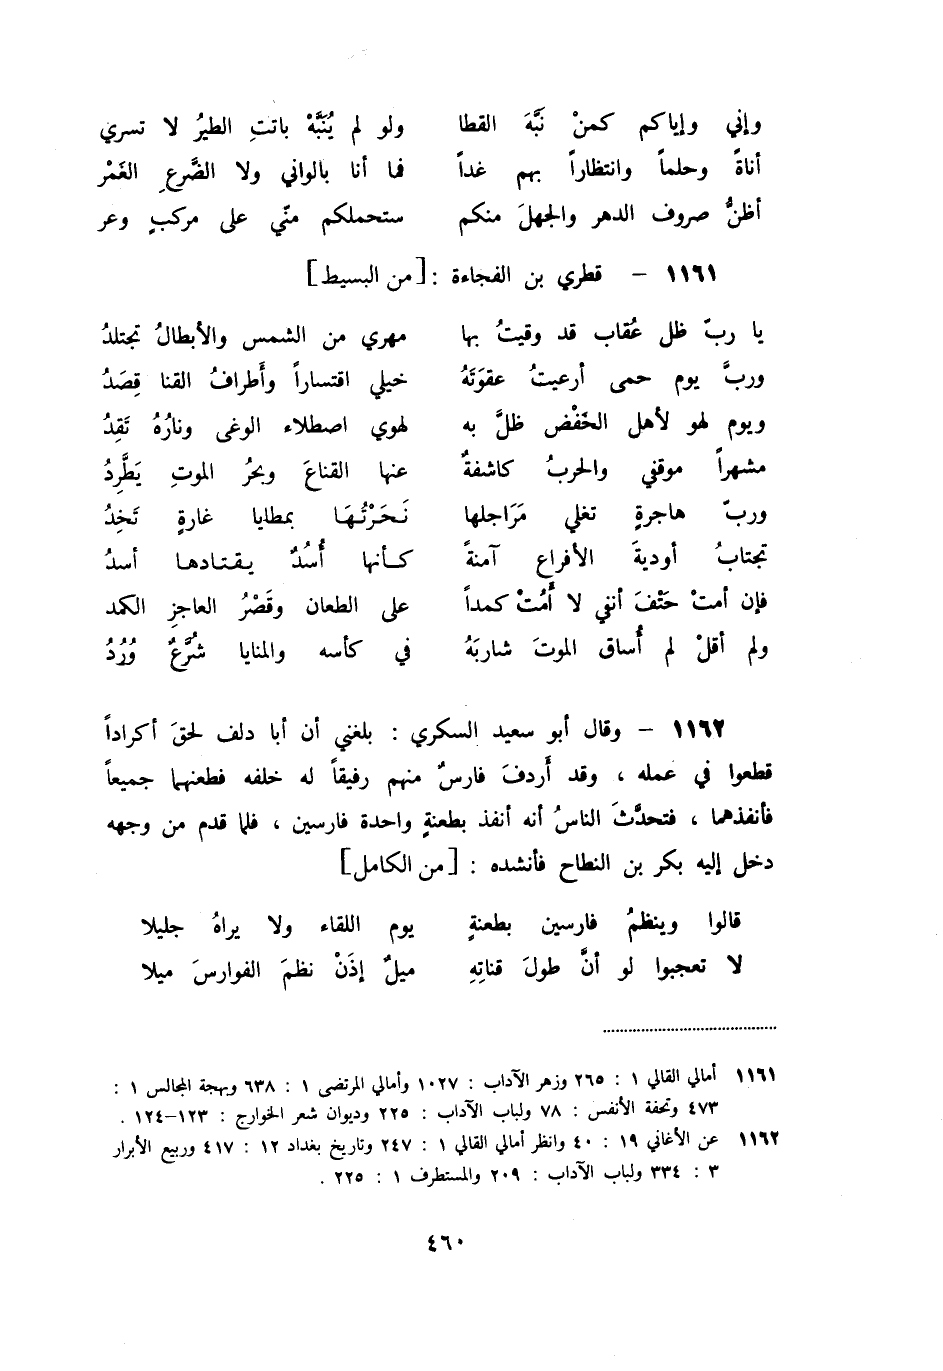 وإني وإياكم كمنْ نَبَّهَ القطا ولو لم يُنَبَّهْ باتتِ الطيرُ لا تسري
أناةً وحلماً وانتظاراً بهم غداً فما أنا بالواني ولا الضَّرعِ الغَمْر
أظنُّ صروف الدهر والجهلَ منكم ستحملكم منّي على مركبٍ وعر
١١٦١ – قطري بن الفجاءة : [من البسيط]
يا ربّ ظل عُقاب قد وقيتُ بها مهري من الشمس والأبطالُ تجتلدُ
وربَّ يوم حمى أرعيتُ عقوَتَهُ خيلي اقتساراً وأَطرافُ القنا قِصَدُ
ويوم لهو لأهل الخَفْض ظلَّ به لهوي اصطلاء الوغى ونارُهُ تَقِدُ
مشهراً موقفي والحربُ كاشفةٌ عنها القناعَ وبحرُ الموتِ يَطَّرِدُ
وربّ هاجرةٍ تغلي مَرَاجلها نَحَرْتُهَا بمطايا غارةٍ تَخِدُ
تجتابُ أوديةَ الأفراع آمنةً كأنها أُسُدٌ يقتادها أسدُ
فإن أمتْ حَتْفَ أنفي لا أَمُتْ كمداً على الطعان وقَصْرُ العاجزِ الكمد
ولم أقلْ لم أُساق الموتَ شاربَهُ في كأسه والمنايا شُرَّعٌ وُرُدُ
١١٦٢ – وقال أبو سعيد السكري : بلغني أن أبا دلف لحقَ أكراداً
قطعوا في عمله ، وقد أَردفَ فارسٌ منهم رفيقاً له خلفه فطعنهما جميعاً
فأنفذهما ، فتحدَّثَ الناسُ أنه أنفذ بطعنةٍ واحدة فارسين ، فلما قدم من وجهه
دخل إليه بكر بن النطاح فأنشده : [من الكامل]
قالوا وينظمُ فارسين بطعنةٍ يوم اللقاء ولا يراهُ جليلا
لا تعجبوا لو أنَّ طولَ قناتِهِ ميلٌ إذَنْ نظمَ الفوارسَ ميلا
١١٦١ أمالي القالي ١ : ٢٦٥ وزهر الآداب : ١٠٢٧ وأمالي المرتضى ١ : ٦٣٨ وبهجة المجالس ١ :
٤٧٣ وتحفة الأنفس : ٧٨ ولباب الآداب : ٢٢٥ وديوان شعر الخوارج : ١٢٣–١٢٤ .
١١٦٢ عن الأغاني ١٩ : ٤٠ وانظر أمالي القالي ١ : ٢٤٧ وتاريخ بغداد ١٢ : ٤١٧ وربيع الأبرار
٣ : ٣٣٤ ولباب الآداب : ٢٠٩ والمستطرف ١ : ٢٢٥ .
٤٦٠